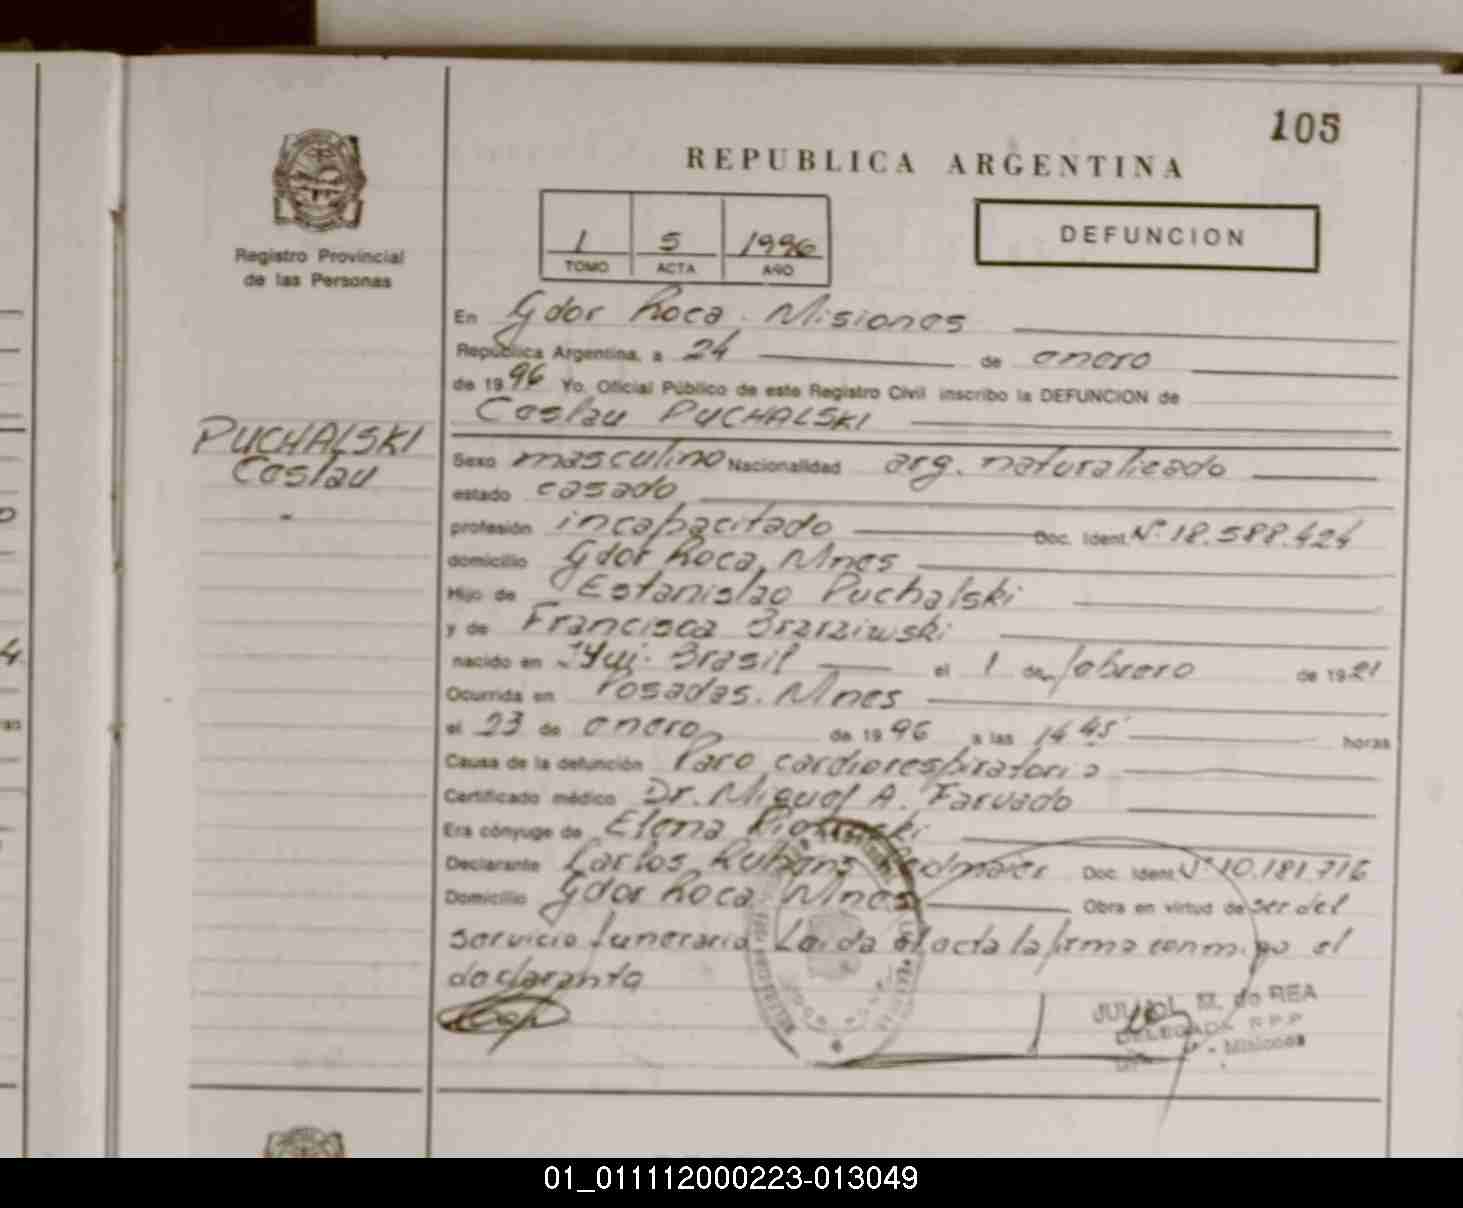 105
REPUBLICA ARGENTINA
Registro Provincial
de las Personas
1 5 1996
TOMO ACTA AÑO
DEFUNCION
En Gdor Roca. Misiones
República Argentina, a 24 de enero
de 1996 Yo. Oficial Público de este Registro Civil inscribo la DEFUNCION de
Ceslau PUCHALSKI
PUCHALSKI
Ceslau
Sexo masculino Nacionalidad arg. naturalizado
estado casado
profesión incapacitado Doc. Ident. Nº 18.588.424
domicilio Gdor Roca, Mnes
Hijo de Estanislao Puchalski
y de Francisca
nacido en Brasil el 1 de febrero de 1921
Ocurrida en Posadas. Mnes
el 23 de enero de 1996 a las 14 45 horas
Causa de la defunción Paro cardiorespiratorio
Certificado médico Dr. Miguel A.
Era cónyuge de Elena
Declarante Carlos Rubens Doc. Ident. Nº 10.181.716
Domicilio Gdor Roca Mnes Obra en virtud de ser del
servicio funerario Leida el acta la firma conmigo el
declarante
M. de REA
DELEGADA R.P.P
Misiones
01_011112000223-013049